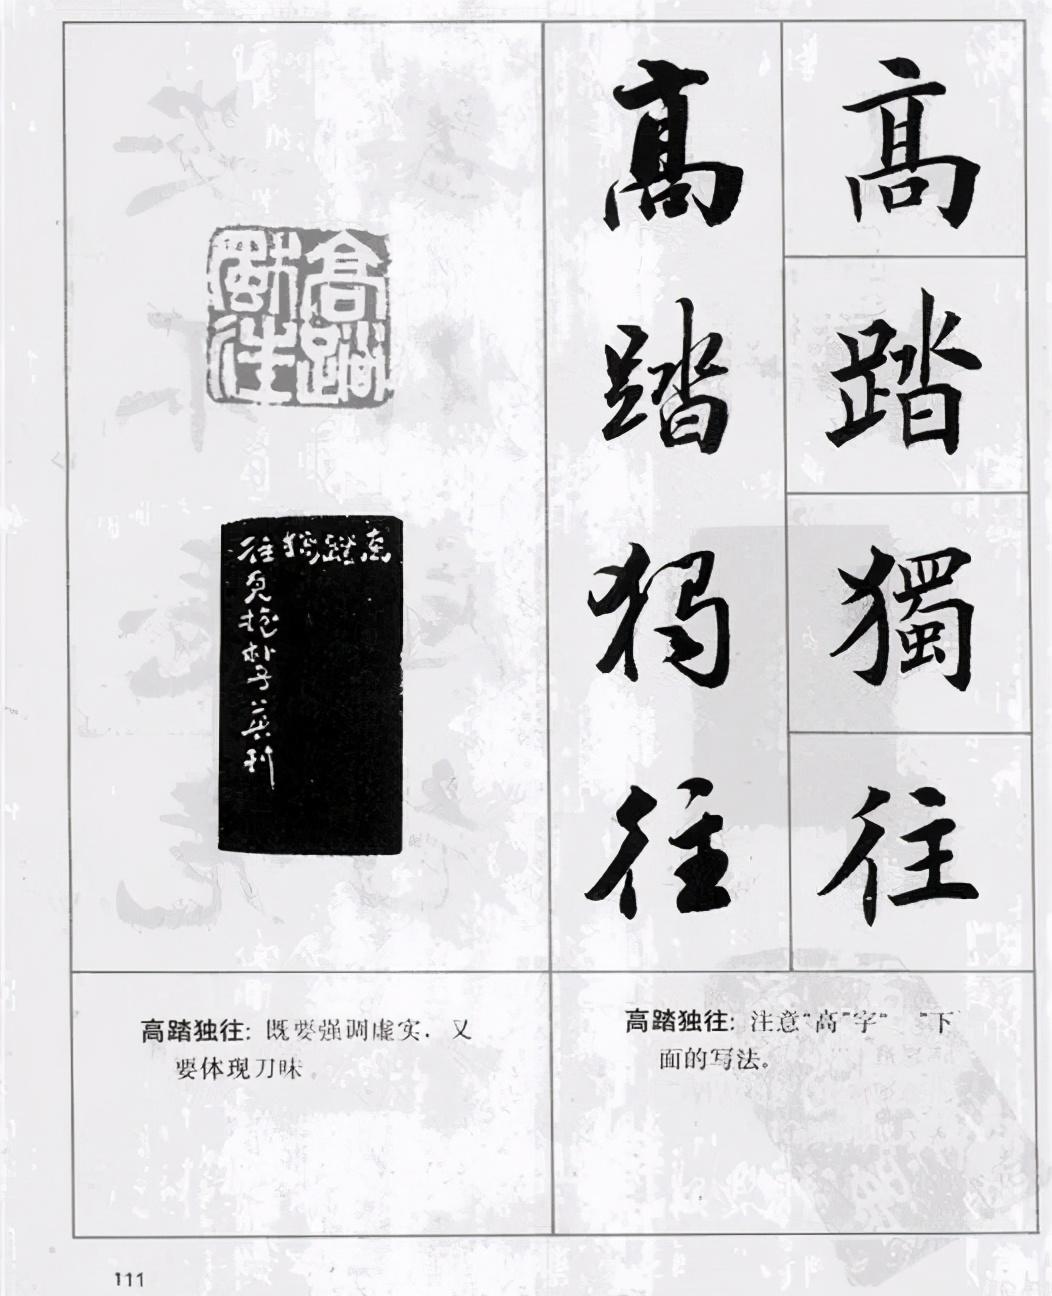 髙踏獨往
髙踏独往
高踏
獨往
高踏独往
见抱朴子
高踏独往：注意“髙”字“ ”下
面的写法。
高踏独往：既要强调虚实，又
要体现刀味。
111